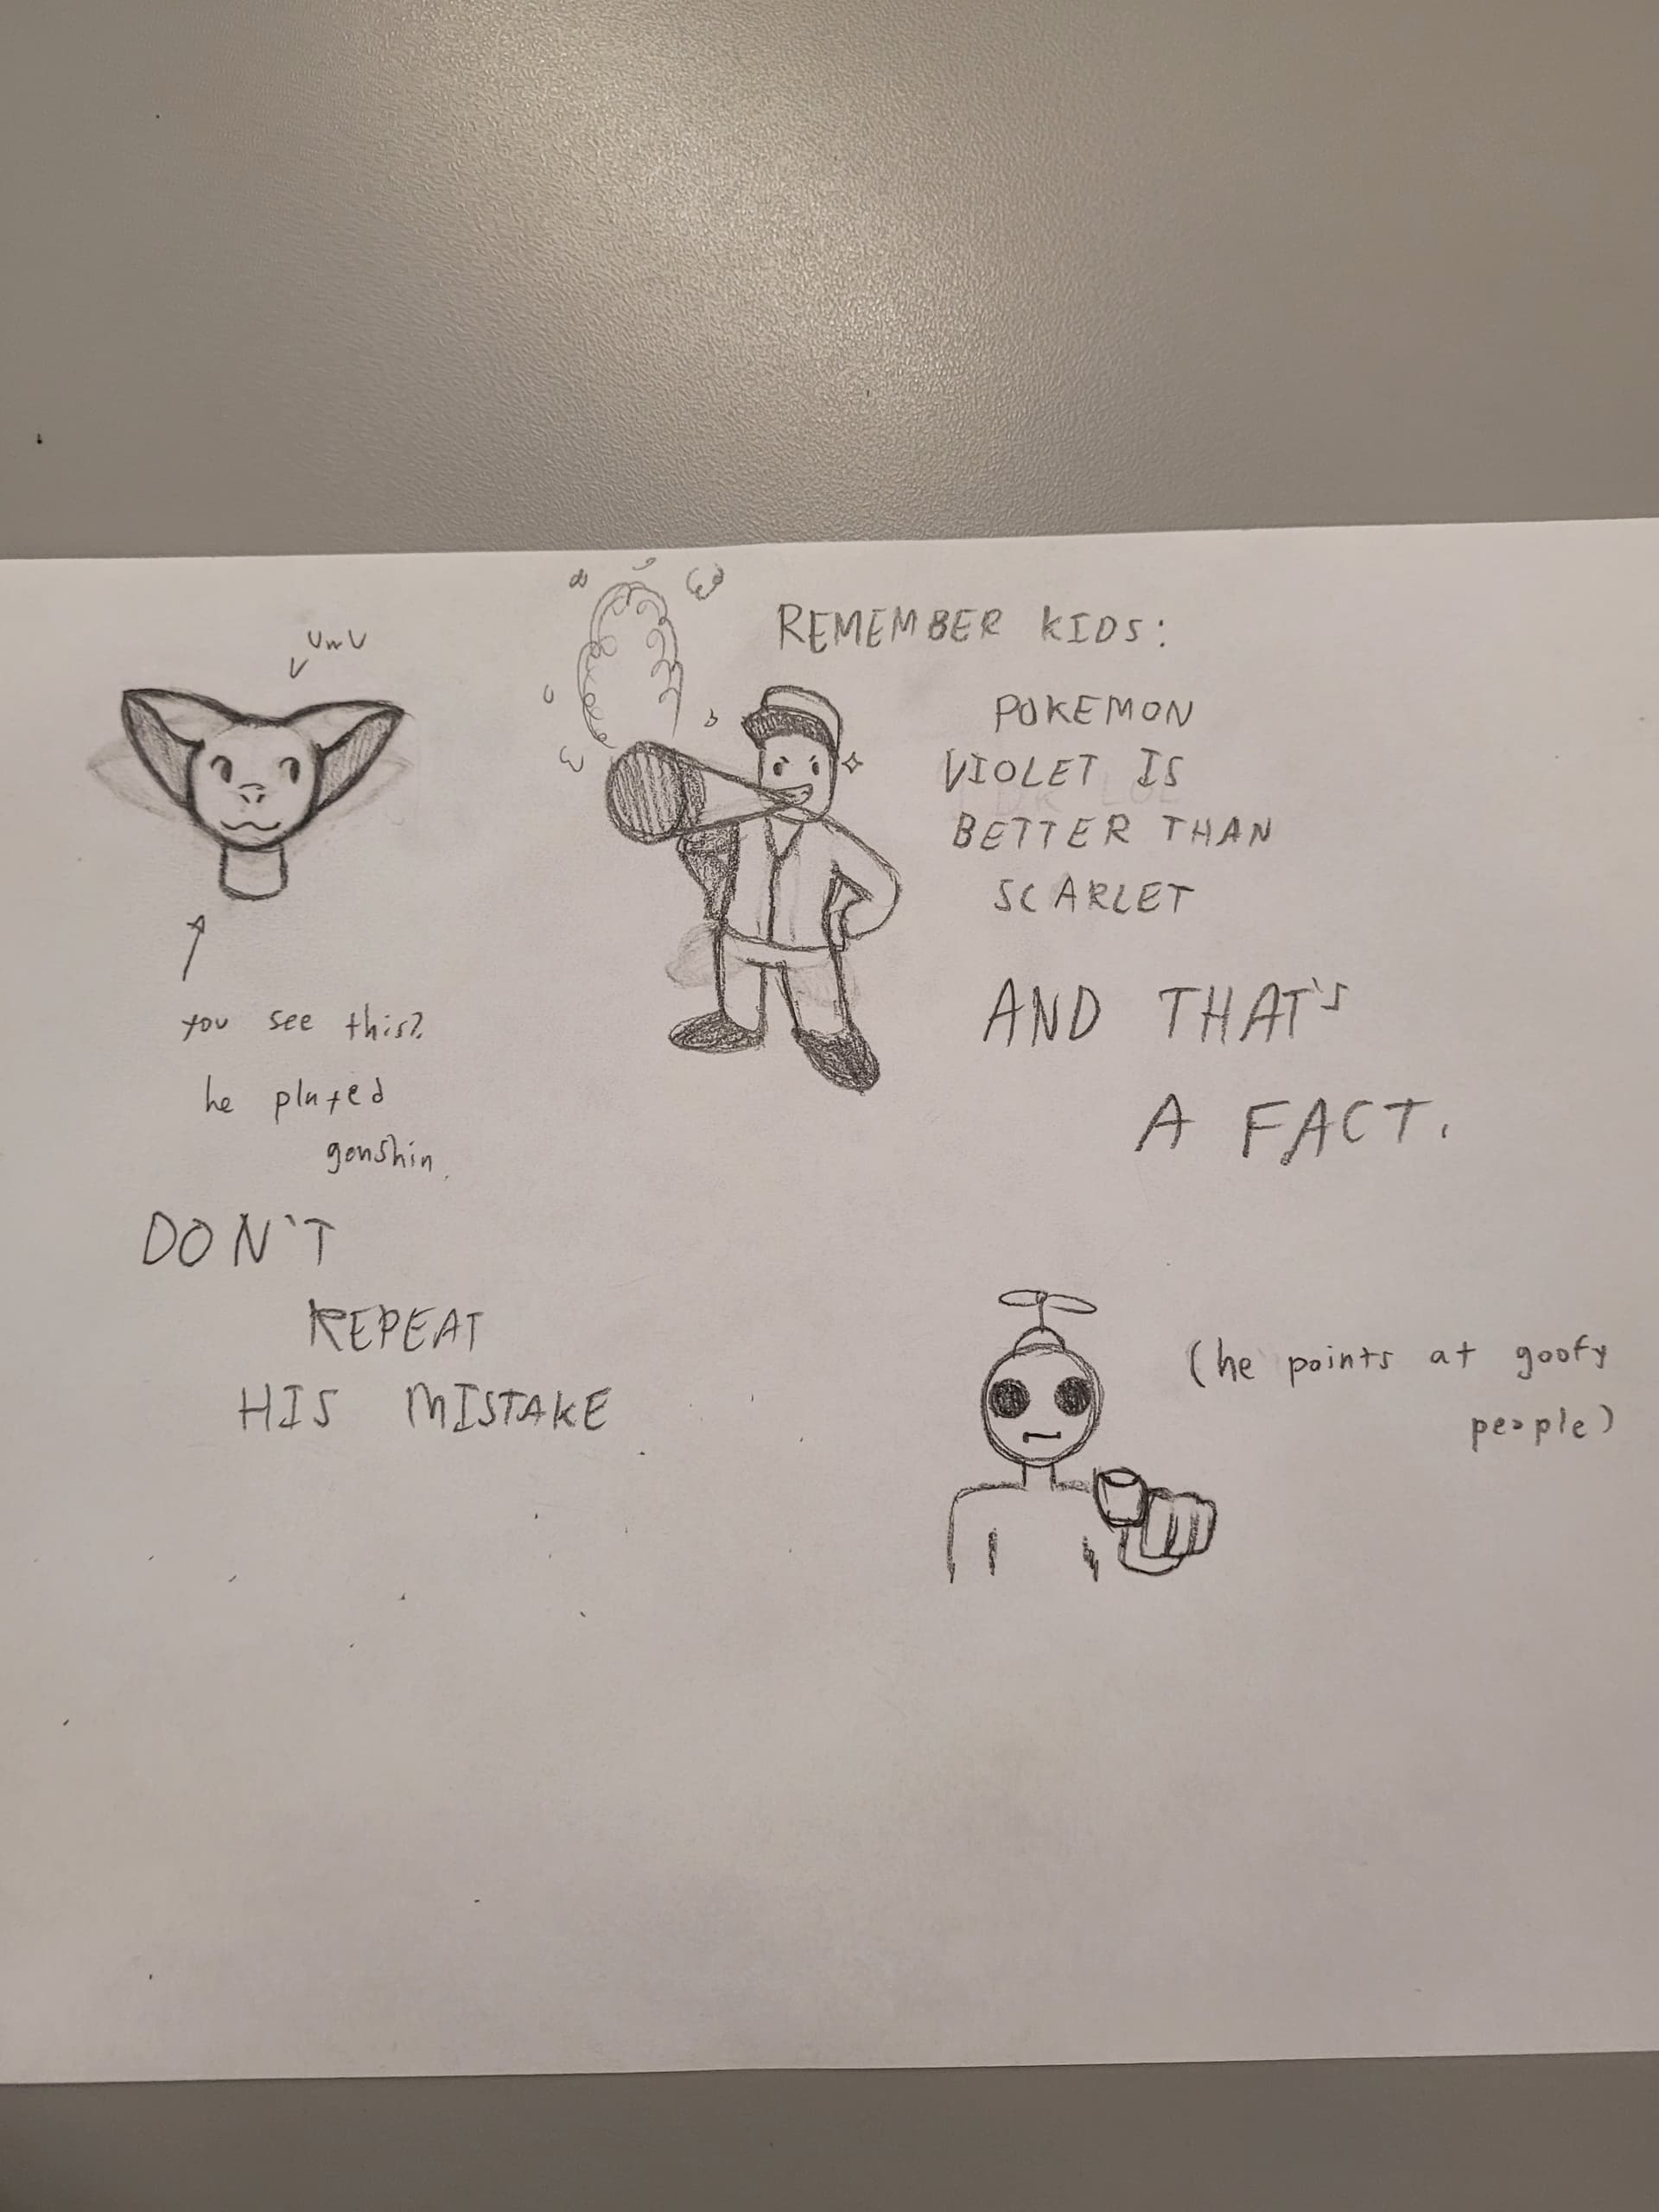 UwU
you see this?
he played
genshin.
DON'T
REPEAT
HIS MISTAKE
REMEMBER KIDS:
POKEMON
VIOLET IS
BETTER THAN
SCARLET
AND THAT'S
A FACT.
(he points at goofy
people)